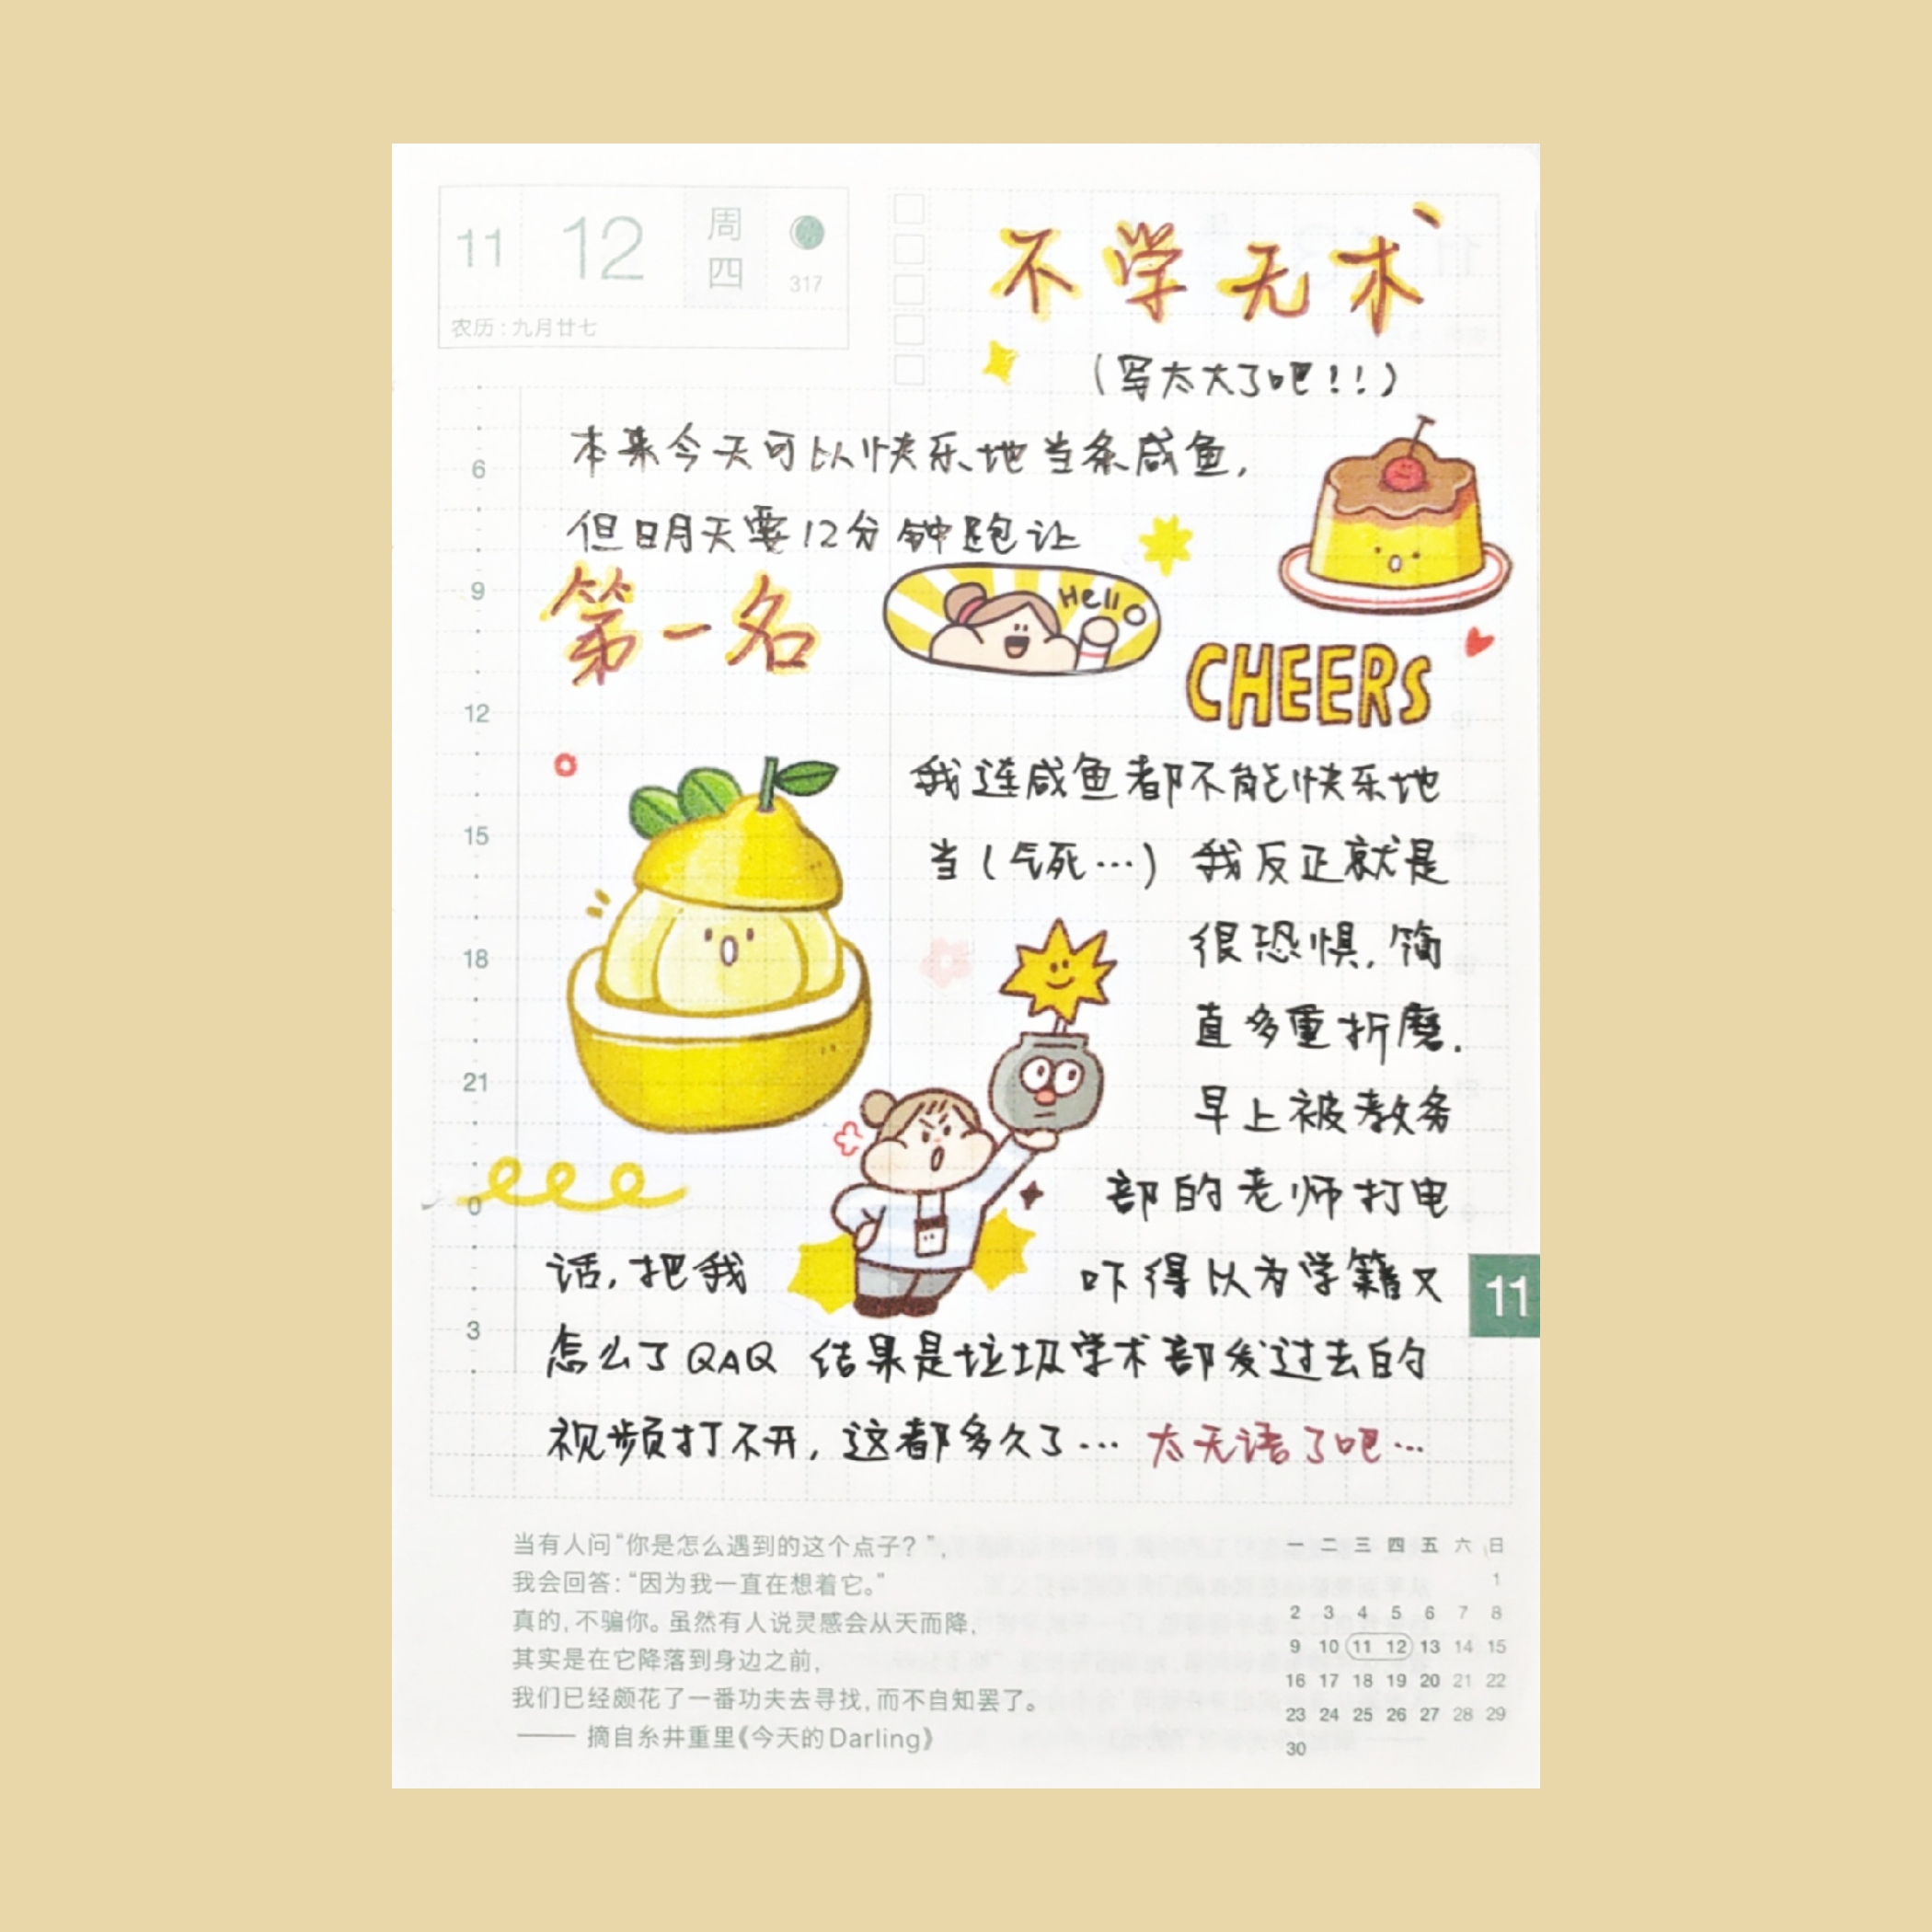 11 12 周四
317
农历:九月廿七
不学无术
(写太大了吧!!)
本来今天可以快乐地当条咸鱼,
但明天要12分钟跑让
第一名
Hello
CHEERS
我连咸鱼都不能快乐地
当(气死…) 我反正就是
很恐惧,简
直多重折磨.
早上被教务
部的老师打电
话,把我吓得以为学籍又
怎么了QAQ 结果是垃圾学术部发过去的
视频打不开,这都多久了… 太无语了吧…
6
9
12
15
18
21
0
3
11
当有人问“你是怎么遇到的这个点子?”,
我会回答:“因为我一直在想着它。”
真的,不骗你。虽然有人说灵感会从天而降,
其实是在它降落到身边之前,
我们已经颇花了一番功夫去寻找,而不自知罢了。
—— 摘自糸井重里《今天的Darling》
一 二 三 四 五 六 日
1
2 3 4 5 6 7 8
9 10 11 12 13 14 15
16 17 18 19 20 21 22
23 24 25 26 27 28 29
30